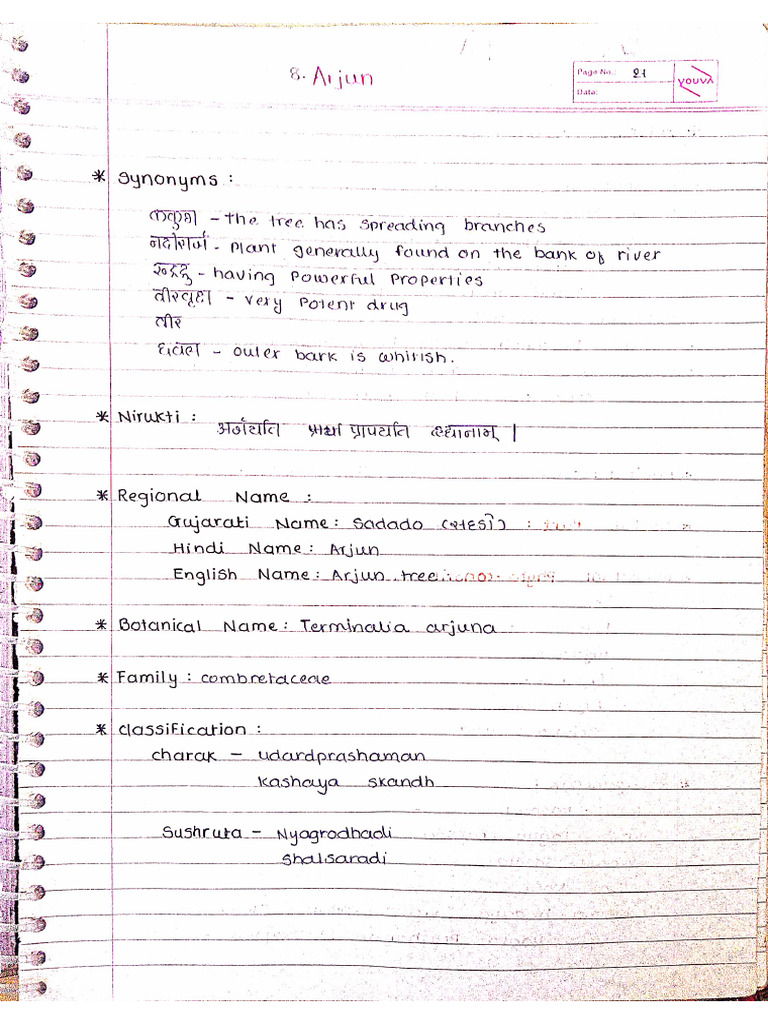 8. Arjun
Page No.: 21
Date:
YOUVA
* Synonyms :
ककुभ - the tree has spreading branches
नदीसर्ज - Plant generally found on the bank of river
- having Powerful Properties
वीरवृक्ष - very Potent drug
वीर
धवल - outer bark is whitish.
* Nirukti :
प्रापयति |
* Regional Name :
Gujarati Name: Sadado (સાદડો) :
Hindi Name: Arjun
English Name: Arjun tree
* Botanical Name: Terminalia arjuna
* Family : combretaceae
* Classification :
charak - udardprashaman
kashaya skandh
Sushruta - Nyagrodhadi
Shalsaradi